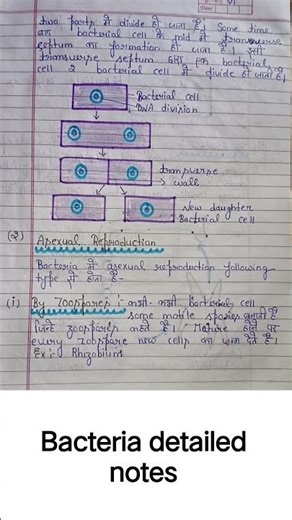 two parts में divide हो जाता है। Some time
का bacterial cell के mid में transverse
septum का formation हो जाता है। इसी
transverse septum द्वारा एक bacterial
cell 2 bacterial cell में divide हो जाता है।
Bacterial cell
DNA division
transverse
wall
New daughter
Bacterial cell
(२) Asexual Reproduction
Bacteria में asexual reproduction following
type से होता है-
(i) By Zoospores :- कभी-कभी bacterial cell
some motile spores बनाती है
जिन्हें zoospores कहते हैं। Mature होने पर
every zoospore new cells का जन्म देते हैं।
Ex:- Rhizobium
Bacteria detailed
notes